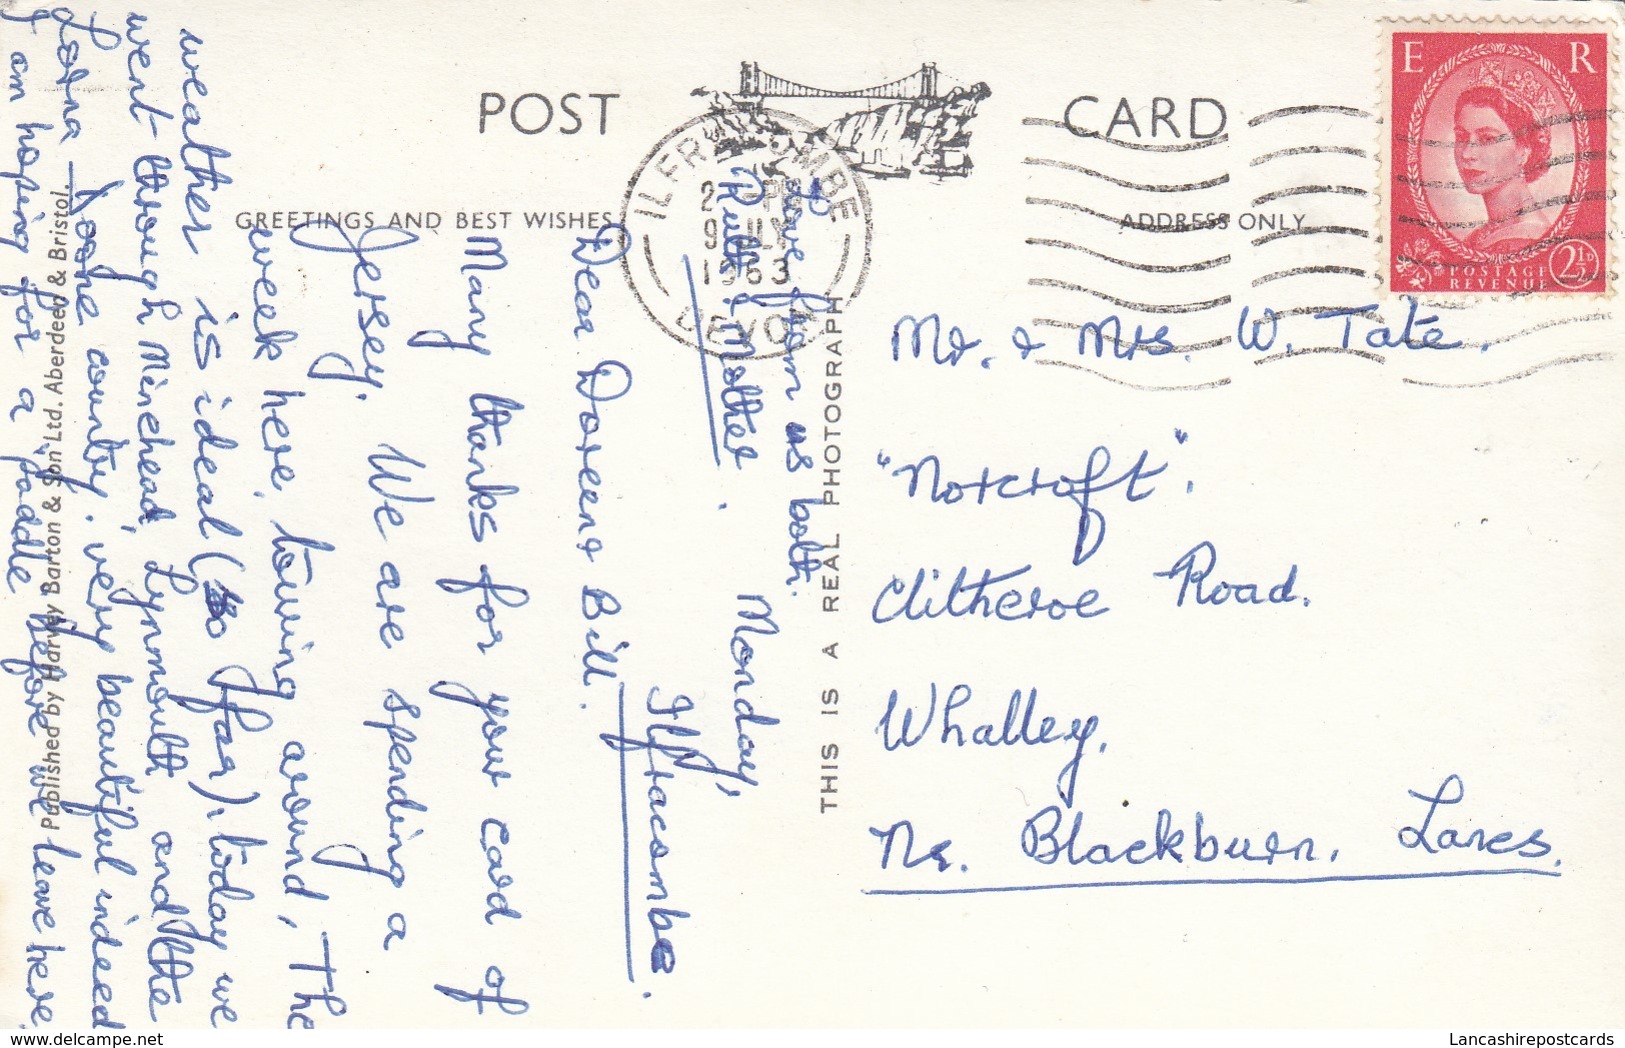 POST CARD
GREETINGS AND BEST WISHES
ADDRESS ONLY
E R
POSTAGE
REVENUE
2½D
ILFRACOMBE
2 PM
9 JLY
1963
DEVON
Monday,
Ilfracombe.
Dear Doreen & Bill.
Many thanks for your card of
Jersey. We are spending a
week here, touring around, The
weather is ideal (so far), today we
went through Minehead, Lynmouth and the
Lorna Doone country, very beautiful indeed
I am hoping for a paddle before we leave here.
Love from us both.
Ruth & Mother.
Mr. & Mrs. W. Tate.
"Norcroft".
Clitheroe Road.
Whalley.
Nr. Blackburn. Lancs.
THIS IS A REAL PHOTOGRAPH
Published by Harvey Barton & Son Ltd. Aberdeen & Bristol.
Lancashirepostcards